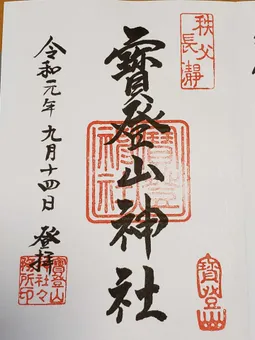 秩父
長瀞
寳登山神社
寳登山
神社
寳登山
令和元年九月十四日 登拝
寳登山
神社々
務所印